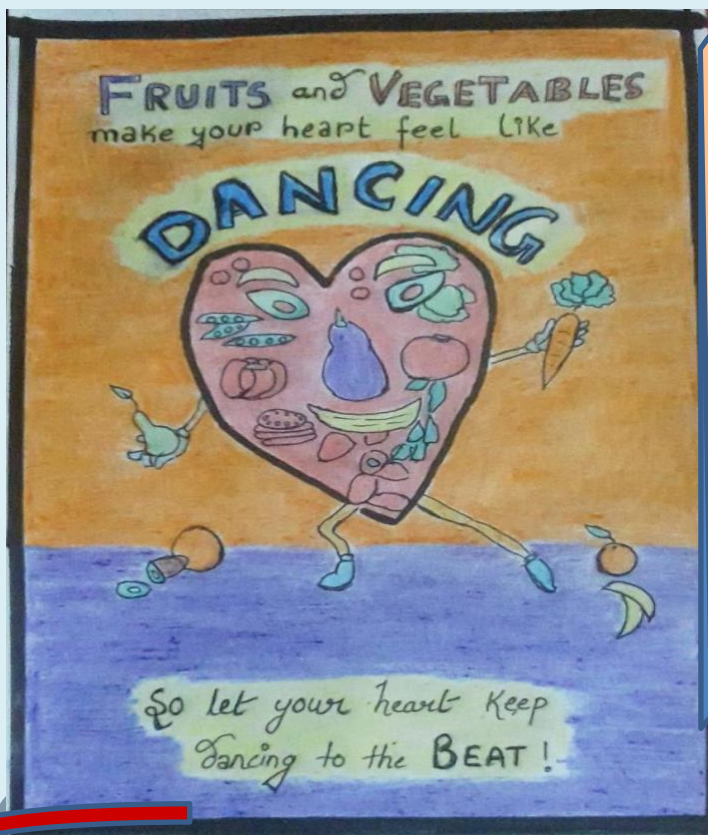 FRUITS and VEGETABLES
make your heart feel like
DANCING
So let your heart keep
dancing to the BEAT!